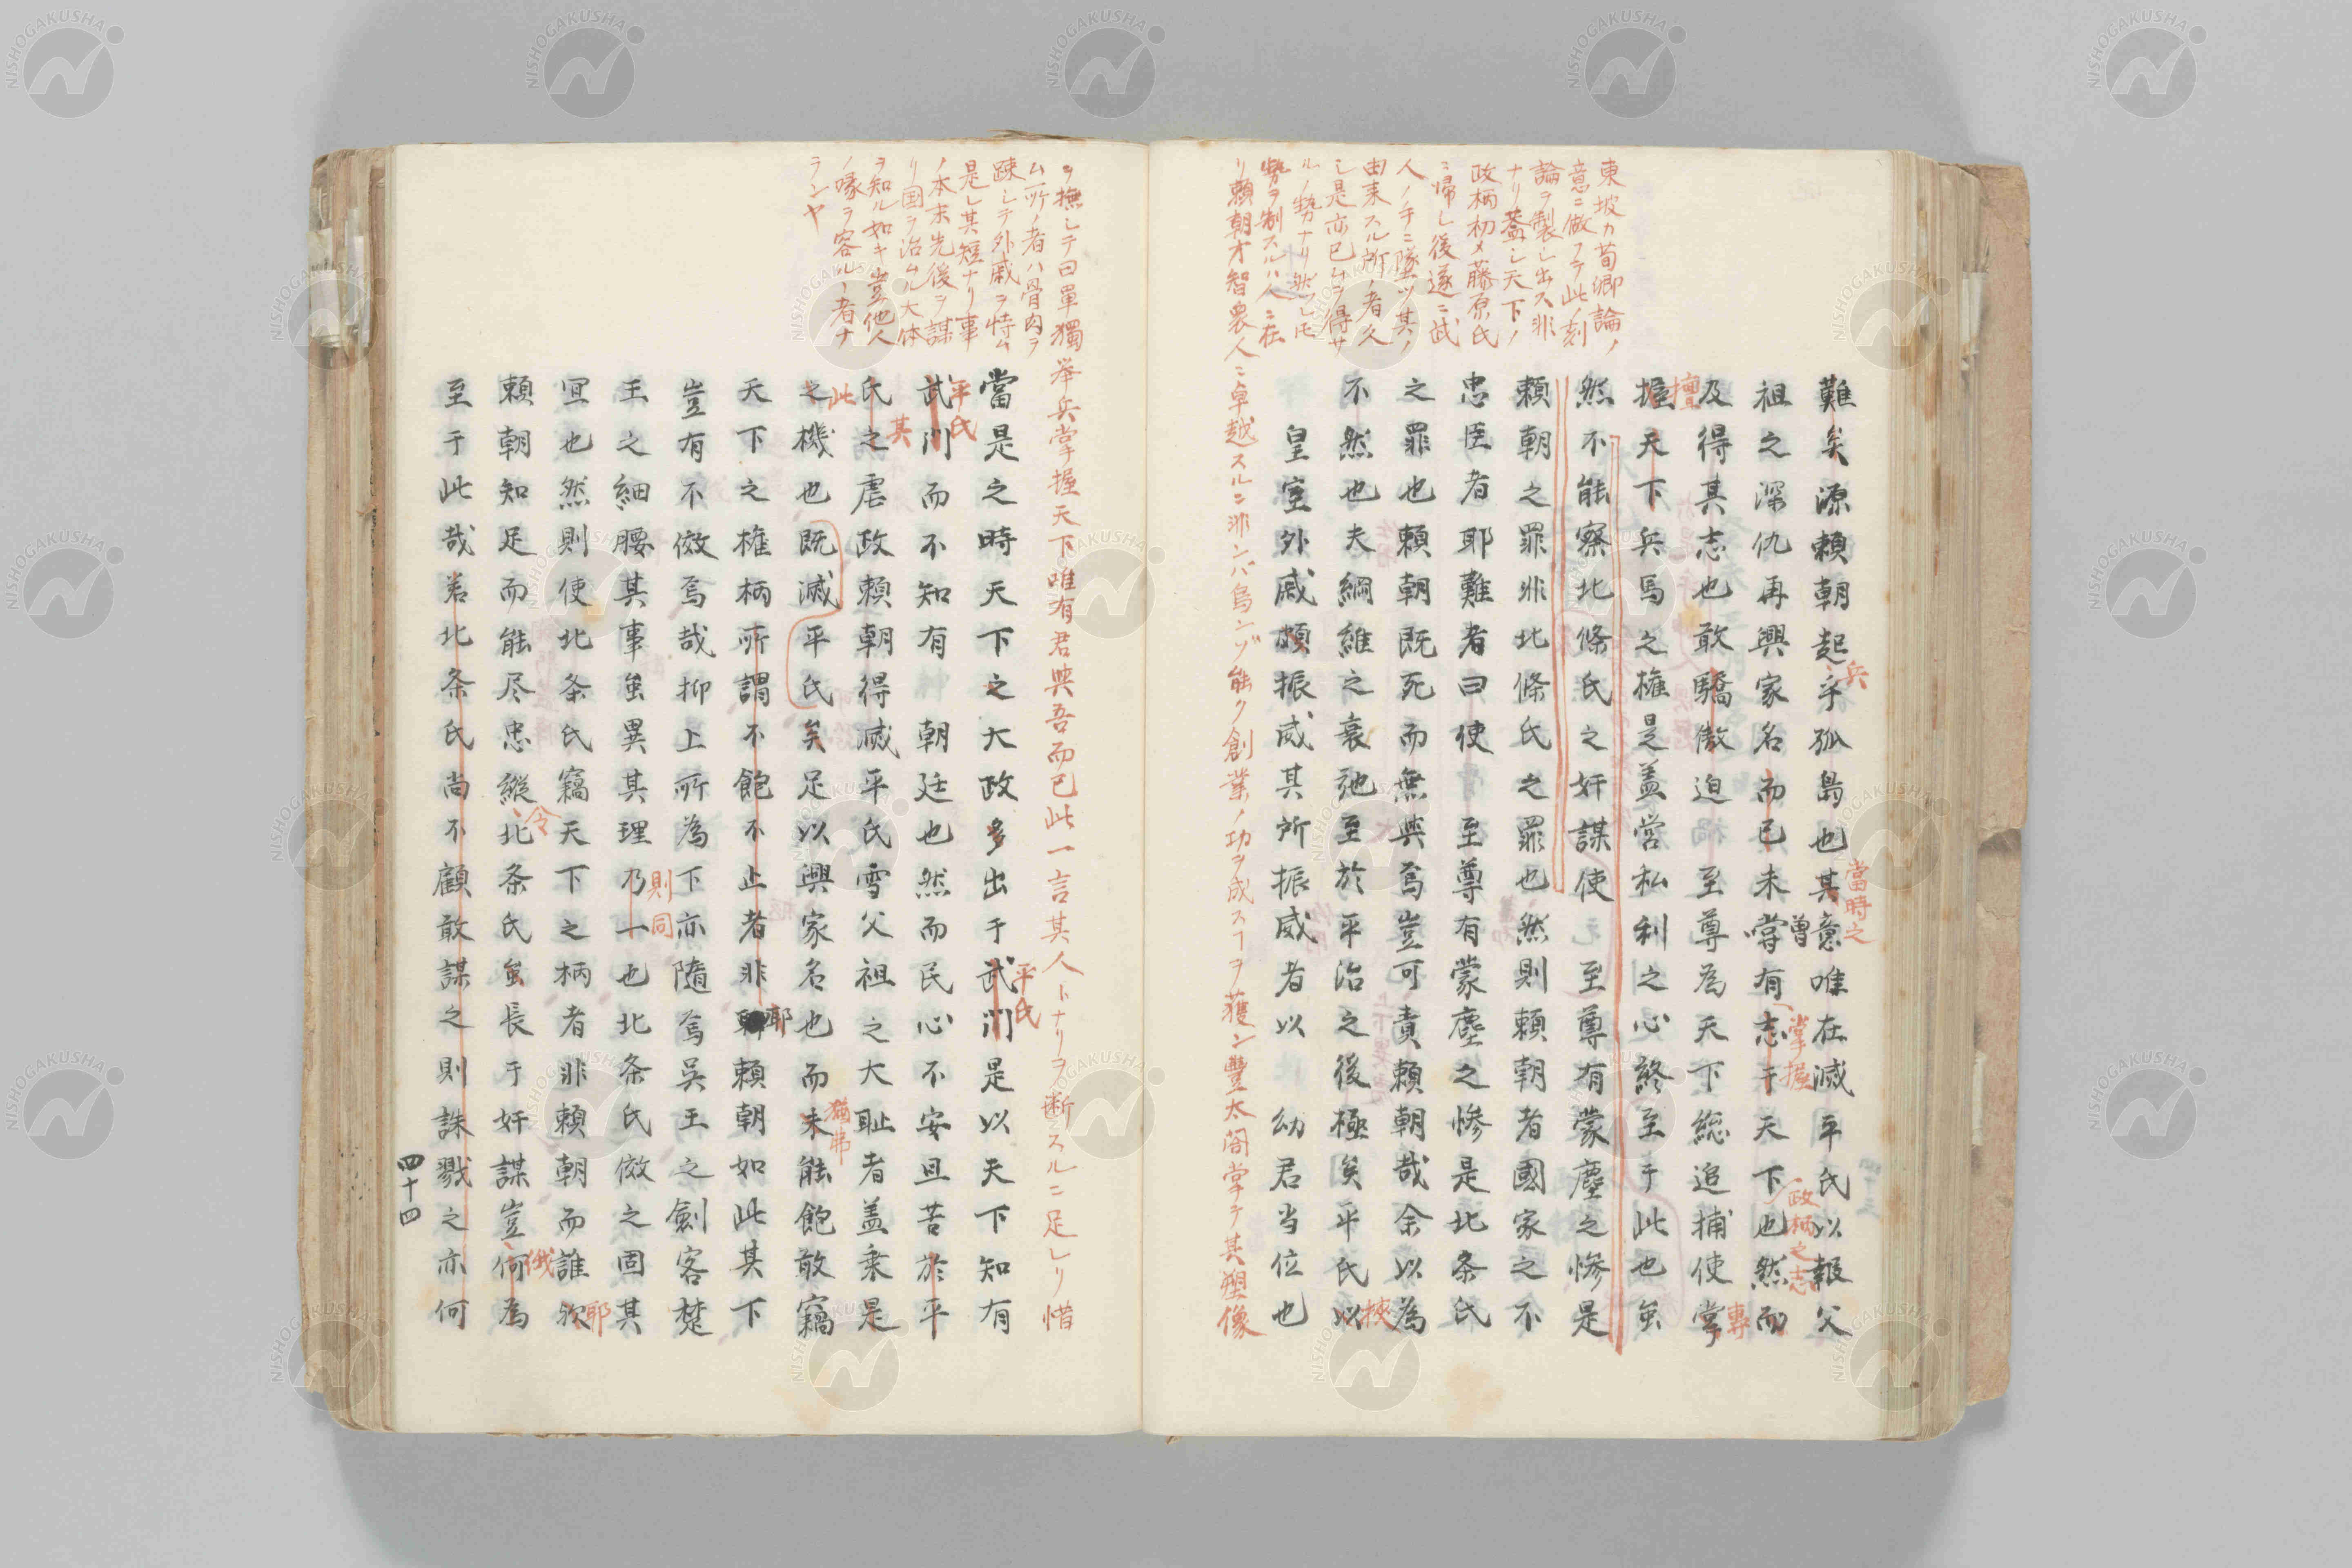 東坡カ荀卿論ノ
意ニ倣フテ此ノ刻
論ヲ製シ出ス非
ナリ蓋シ天下ノ
政柄初メ藤原氏
ニ帰シ後遂ニ武
人ノ手ニ墜ツ其ノ
由来スル所ノ者久
シ是亦已ムヲ得サ
ルノ勢ナリ然レ𪜈
勢ヲ制スルハ人ニ在
リ頼朝才智衆人ニ卓越スルニ非ンバ烏ンゾ能ク創業ノ功ヲ成スヿヲ獲ン豐太閤掌テ其塑像
難矣源頼朝起乎孤島也其意唯在滅平氏以報父
兵
當時之
祖之深仇再興家名而已未嘗有志于天下也然而
曽
掌握
政柄之志
及得其志也敢驕傲迫至尊為天下総追捕使掌
專
握天下兵馬之権是盖営私利之心終至于此也虽
擅
然不能察北條氏之奸謀使至尊有蒙塵之惨是
頼朝之罪非北條氏之罪也然則頼朝者國家之不
忠臣者耶難者曰使至尊有蒙塵之惨是北条氏
之罪也頼朝既死而無與焉豈可責頼朝哉余以為
不然也夫綱維之衰弛至於平治之後極矣平氏以
挾
皇室外戚頗振威其所振威者以幼君当位也
ヲ撫シテ曰單獨举兵掌握天下唯有君與吾而已此一言其人トナリヲ断スルニ足レリ惜
ム所ノ者ハ骨肉ヲ
疎シテ外戚ヲ恃ム
是レ其短ナリ事
ノ本末先後ヲ謀
リ国ヲ治ムル大体
ヲ知ル如キ豈他人
ノ喙ヲ容ルヽ者ナ
ランヤ
當是之時天下之大政多出于武门是以天下知有
平氏
武门而不知有朝廷也然而民心不安且苦於平
平氏
其
氏之虐政頼朝得滅平氏雪父祖之大耻者盖乗是
此
之機也既滅平氏矣足以興家名也而未能飽敢竊
猶弗
天下之権柄所謂不飽不止者非頼朝如此其下
耶
豈有不傚焉哉抑上所為下亦隨焉吳王之劍客楚
王之細腰其事虽異其理乃一也北条氏傚之固其
則同
冝也然則使北条氏竊天下之柄者非頼朝而誰欤
耶
頼朝知足而能尽忠縦北条氏虽長于奸謀豈何為
令
俄
至于此哉若北条氏尚不顧敢謀之則誅戮之亦何
四十四
NISHOGAKUSHA